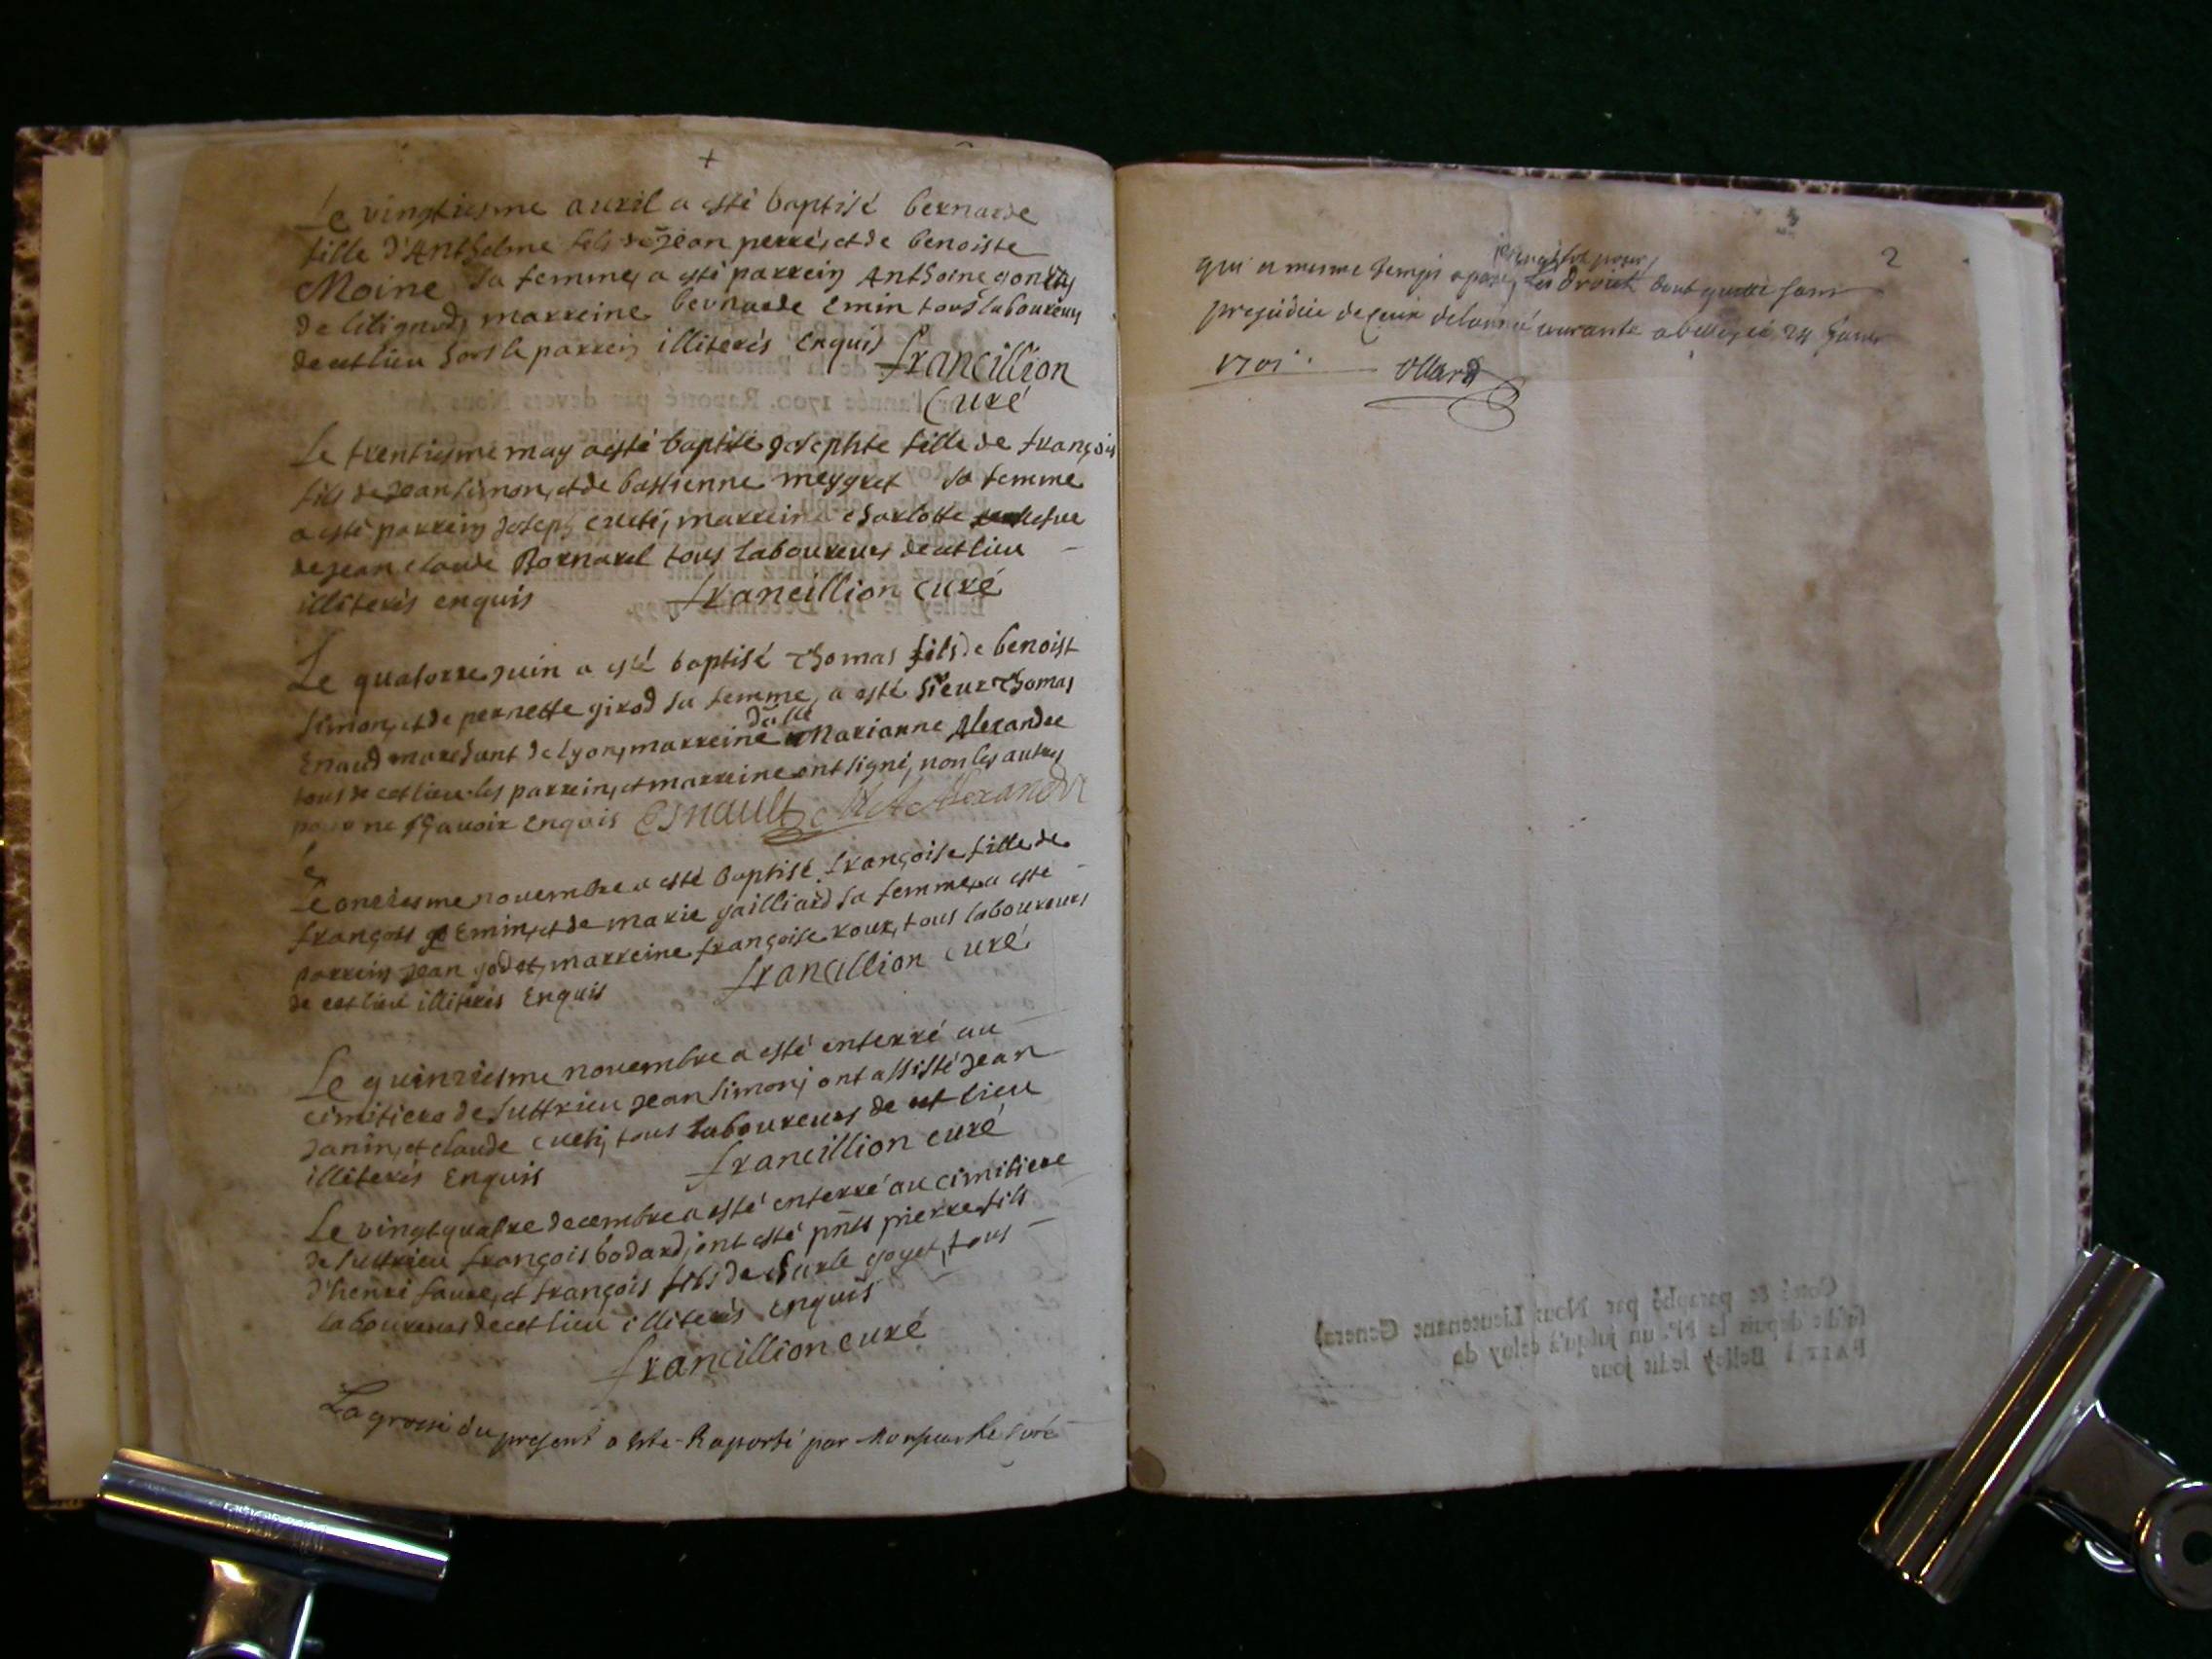 Le vingtiesme auril a esté baptisé bernarde
fille d'Anthelme fils de Jean perret, et de benoiste
Moine sa femme, a esté parrein Anthoine
de litignod, marreine bernarde Emin tous laboureurs
de cet lieu hors le parrein illiterés Enquis francillion
Curé
Le trentiesme may a esté baptisé Josephte fille de françois
fils de Jean simon, et de bastienne meygret sa femme
a esté parrein Joseph cueti, marreine charlotte
de Jean claude Bornarel tous laboureurs de cet lieu
illiterés enquis francillion curé
Le quatorze Juin a esté baptisé Thomas fils de benoist
simon, et de pernette girod sa femme, a esté sieur Thomas
Enaud marchant de Lyon, marreine dlle Marianne Alexandre
tous de cet lieu les parrein, et marreine ont signé, non les autres
pour ne sçauoir enquis Esnault M A Alexandre
Le onziesme nouembre a esté baptisé françoise fille de
françois Emin, et de marie gailliard sa femme, a esté
parrein Jean godet, marreine françoise roux, tous laboureurs
de cet lieu illiterés Enquis francillion curé
Le quinziesme nouembre a esté enterré au
cimitiere de Suttrieu Jean simon, ont assisté Jean
Janin, et claude cueti, tous laboureurs de cet lieu
illiterés Enquis francillion curé
Le vingtquatre decembre a esté enterré au cimitiere
de suttrieu françois bodard, ont esté pnts pierre fils
d'henri faure, et françois fils de charle goyet, tous
laboureurs de cet lieu illiterés enquis
francillion curé
La grosse du present a este Raporté par Monsieur le Curé
2
qui a mesme temps a payé les Droict dont quitte sans
prejudice de ceux de l'année courante a belley ce 24 Januier
1701 Ollard
Cotté & paraphé par Nous Lieutenant General
susdit depuis le No. un jusqu'à celuy de
FAIT à Belley ledit jour